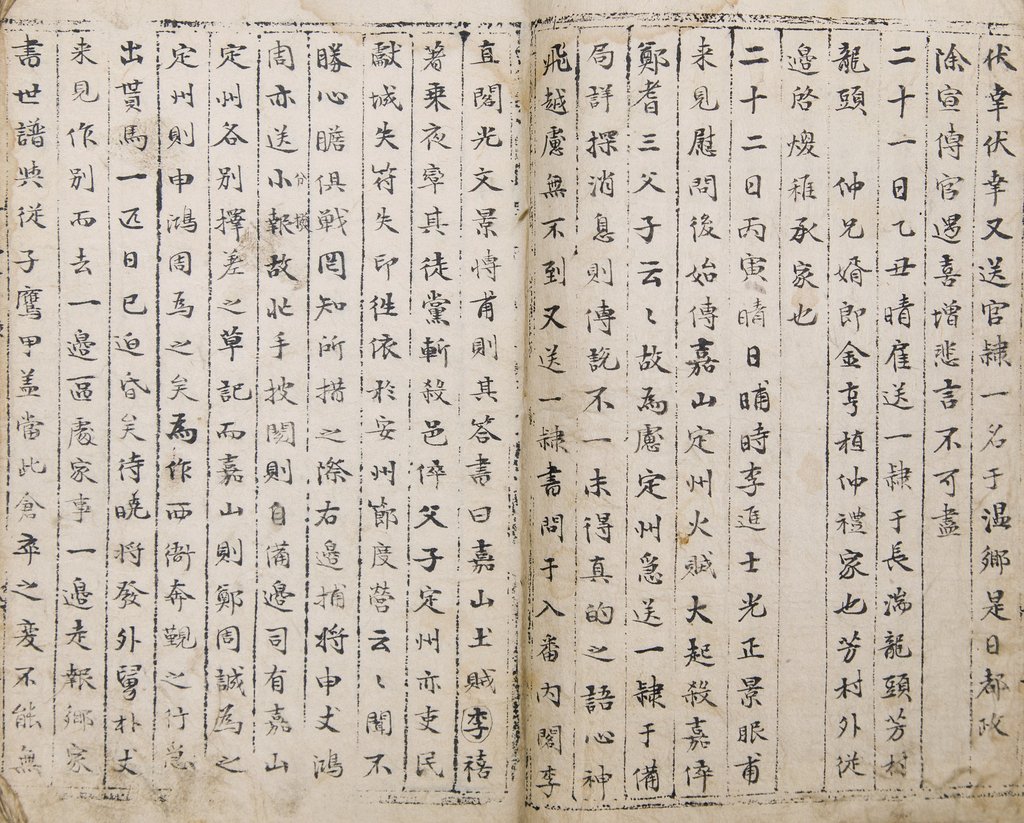 伏幸伏幸又送官隷一名于温鄉是日都政
除宣傳官遇喜增悲言不可盡
二十一日乙丑晴雇送一隷于長湍龍頭芳村
龍頭 仲兄婿郎金亨植仲禮家也芳村外從
邊啓㷜稚承家也
二十二日丙寅晴日晡時李進士光正景眼甫
来見慰問後始傳嘉山定州火賊大起殺嘉倅
鄭耆三父子云〻故為慮定州急送一隷于備
局詳探消息則傳說不一未得真的之語心神
飛越慮無不到又送一隷書問于入番內閣李
直閣光文景博甫則其答書曰嘉山土賊李禧
著乗夜率其徒黨斬殺邑倅父子定州亦吏民
獻城失符失印徃依於安州節度營云〻聞不
勝心膽俱戰罔知所措之際右邊捕将申丈鴻
周亦送小報故忙手披閱則自備邊司有嘉山
定州各別擇差之草記而嘉山則鄭周誠為之
定州則申鴻周爲之矣為作西衙奔覲之行急
出貰馬一匹日已迫昏矣待曉将發外舅朴丈
来見作別而去一邊區處家事一邊走報鄉家
書世譜典従子鷹甲盖當此倉卒之変不能無